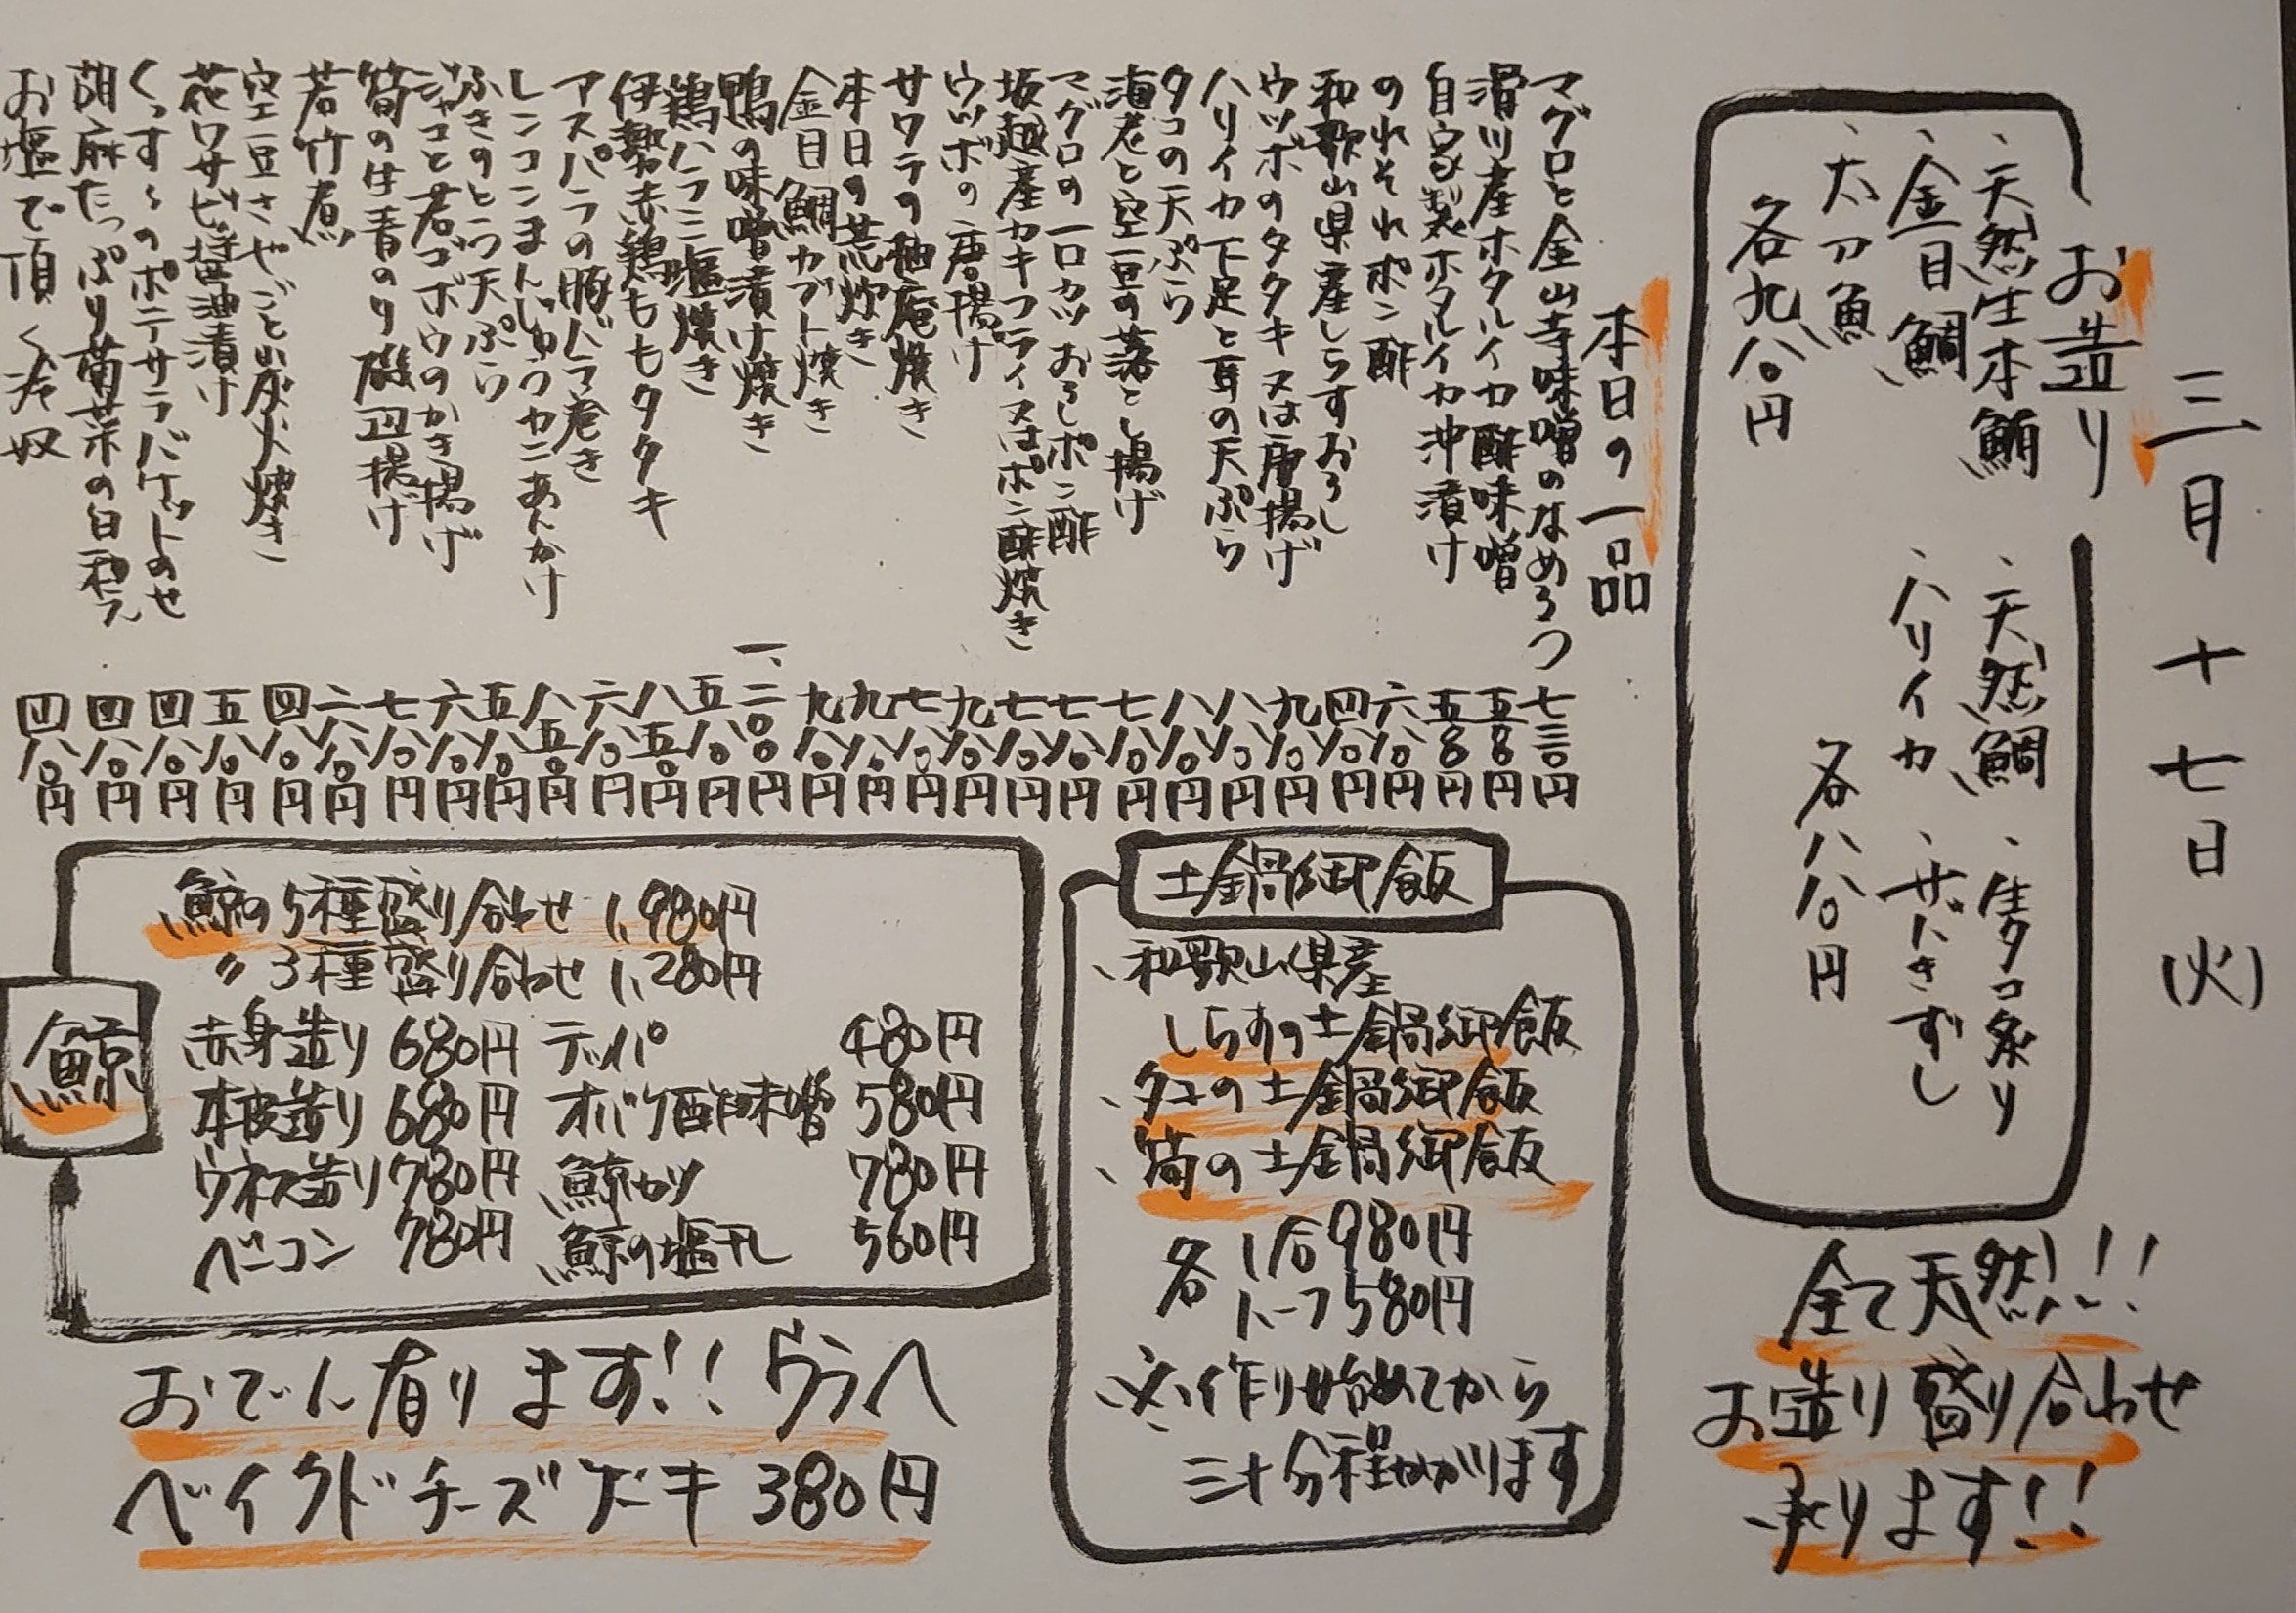 三月十七日(火)
お造り
、天然生本鮪
、天然鯛
、生タコ炙り
、金目鯛
、ハリイカ
、サバきずし
、太刀魚
各九八〇円
各八八〇円
全て天然!!
お造り盛り合わせ
承ります!!
本日の一品
マグロと金山寺味噌のなめろう 七三〇円
滑川産ホタルイカ酢味噌 五八〇円
自家製ホタルイカ沖漬け 五八〇円
のれそれポン酢 六八〇円
和歌山県産しらすおろし 四八〇円
ウツボのタタキ又は唐揚げ 九八〇円
ハリイカ下足と耳の天ぷら 八八〇円
タコの天ぷら 八八〇円
海老と空豆の落とし揚げ 七八〇円
マグロの一口カツおろしポン酢 七八〇円
坂越産カキフライ又はポン酢焼き 七八〇円
ウツボの唐揚げ 九八〇円
サワラの柚庵焼き 七八〇円
本日の荒炊き 九八〇円
金目鯛カブト焼き 九八〇円
鴨の味噌漬け焼き 一、二〇〇円
鶏ハラミ塩焼き 五八〇円
伊勢赤鶏ももタタキ 八五〇円
アスパラの豚バラ巻き 六八〇円
レンコンまんじゅうカニあんかけ 八五〇円
ふきのとう天ぷら 五八〇円
ジャコと若ゴボウのかき揚げ 六八〇円
筍の生青のり磯辺揚げ 七八〇円
若竹煮 六八〇円
空豆さやごと炭火焼き 四八〇円
花ワサビ醤油漬け 五八〇円
くっすぅのポテサラバケットのせ 四八〇円
胡麻たっぷり菊菜の白和え 四八〇円
お塩で頂く冷奴 四八〇円
土鍋御飯
、和歌山県産
しらすの土鍋御飯
、タコの土鍋御飯
、筍の土鍋御飯
各 1合980円
ハーフ580円
※作り始めてから
三十分程かかります
鯨
鯨の5種盛り合わせ 1,980円
〃3種盛り合わせ 1,280円
赤身造り 680円 テッパ 480円
本皮造り 680円 オバケ酢味噌 580円
ウネス造り 780円 鯨カツ 780円
ベーコン 780円 鯨の塩干し 560円
おでん有ります!! ウラへ
ベイクドチーズケーキ 380円